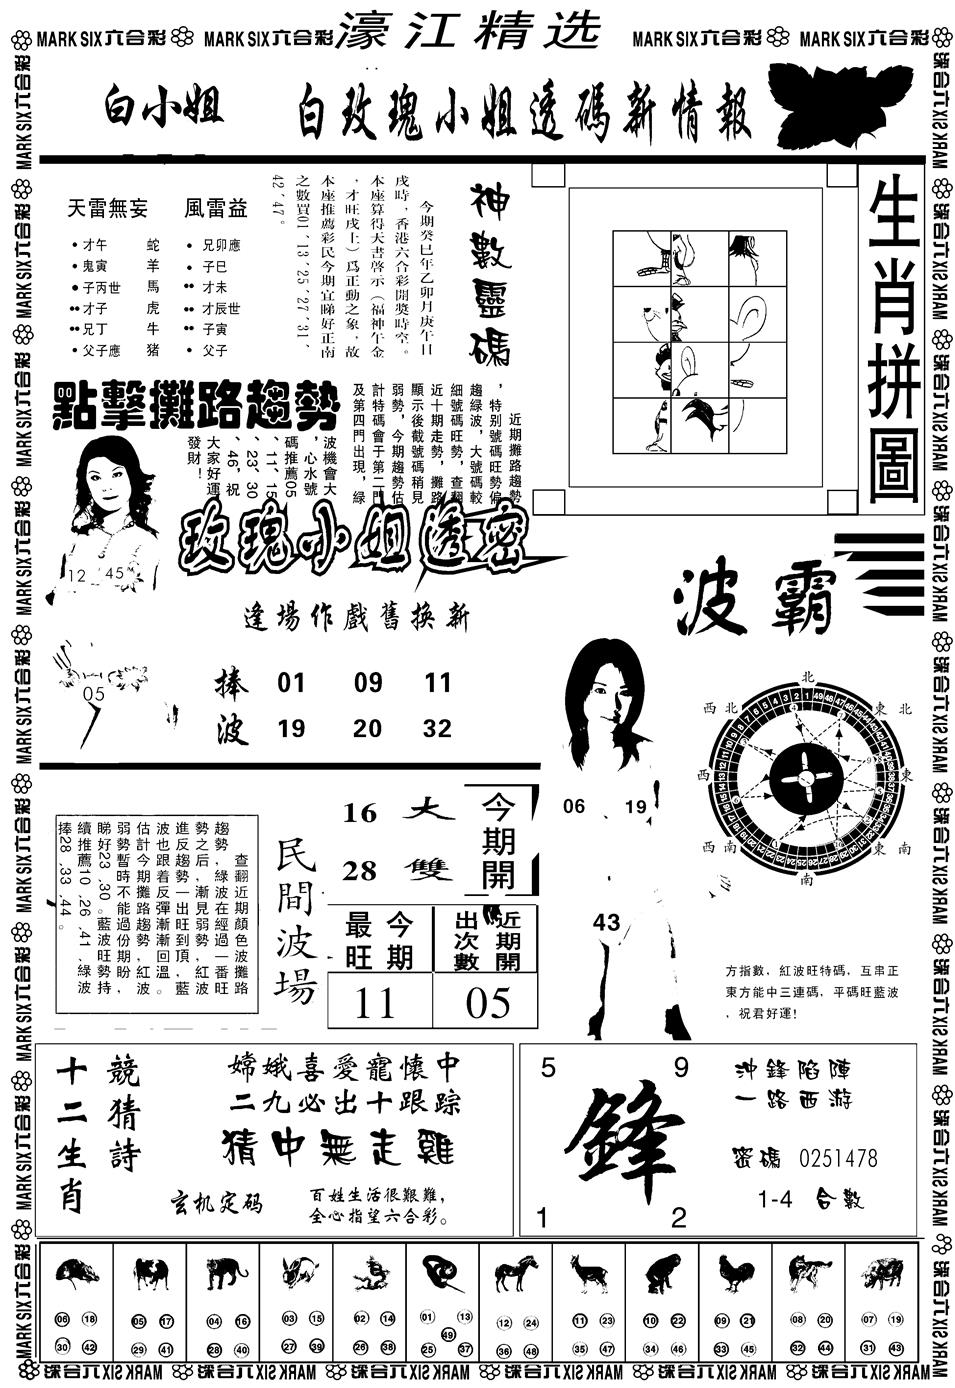 MARK SIX六合彩 MARK SIX六合彩 濠江精选 MARK SIX六合彩 MARK SIX六合彩
白小姐 白玫瑰小姐透碼新情報
天雷無妄 風雷益
才午 蛇 兄卯應
鬼寅 羊 子巳
子丙世 馬 才未
才子 虎 才辰世
兄丁 牛 子寅
父子應 猪 父子
神數靈碼
今期癸巳年乙卯月庚午日
戌時，香港六合彩開獎時空。
本座算得天書啓示（福神午金
，才旺戌土）爲正動之象，故
本座推薦彩民今期宜睇好正南
之數買01、13、25、27、31、
42、47。
生肖拼圖
點擊攤路趨勢
近期攤路趨勢
，特别號碼旺勢偏
趨綠波，大號碼較
細號碼旺勢，查翻
近十期走勢，攤路
顯示後截號碼稍見
弱勢，今期趨勢估
計特碼會于第二門
及第四門出現，綠
波機會大
，心水號
碼推薦05
、11、15
、23、30
、46，祝
大家好運
發財！
12 45
05
玫瑰小姐透密
逢場作戲舊換新
捧 01 09 11
波 19 20 32
波霸
北
東北
東
東南
南
西南
西
西北
06 19
43
方指數，紅波旺特碼，互串正
東方能中三連碼，平碼旺藍波
，祝君好運!
查翻近期顏色波攤路
趨勢，綠波在經過一番旺
勢之后，漸見弱勢，紅波
進反趨勢一出旺到頂，藍
波也跟着反彈漸漸回溫。
估計今期攤路趨勢紅波
弱勢暫時不能過份期盼，
睇好23、30。藍波旺勢持
續推薦10、26、41、綠波
捧28、33、44。
民間波場
16 大 今期開
28 雙
今期最旺 近期開出次數
11 05
競猜詩
十二生肖
嫦娥喜愛寵懷中
二九必出十跟踪
猜中無走雞
玄机定码
百姓生活很艱難，
全心指望六合彩。
5 9
鋒
1 2
沖鋒陷陣
一路西游
密碼 0251478
1-4 合數
06 18 05 17 04 16 03 15 02 14 01 13 12 24 11 23 10 22 09 21 08 20 07 19
49
30 42 29 41 28 40 27 39 26 38 25 37 36 48 35 47 34 46 33 45 32 44 31 43